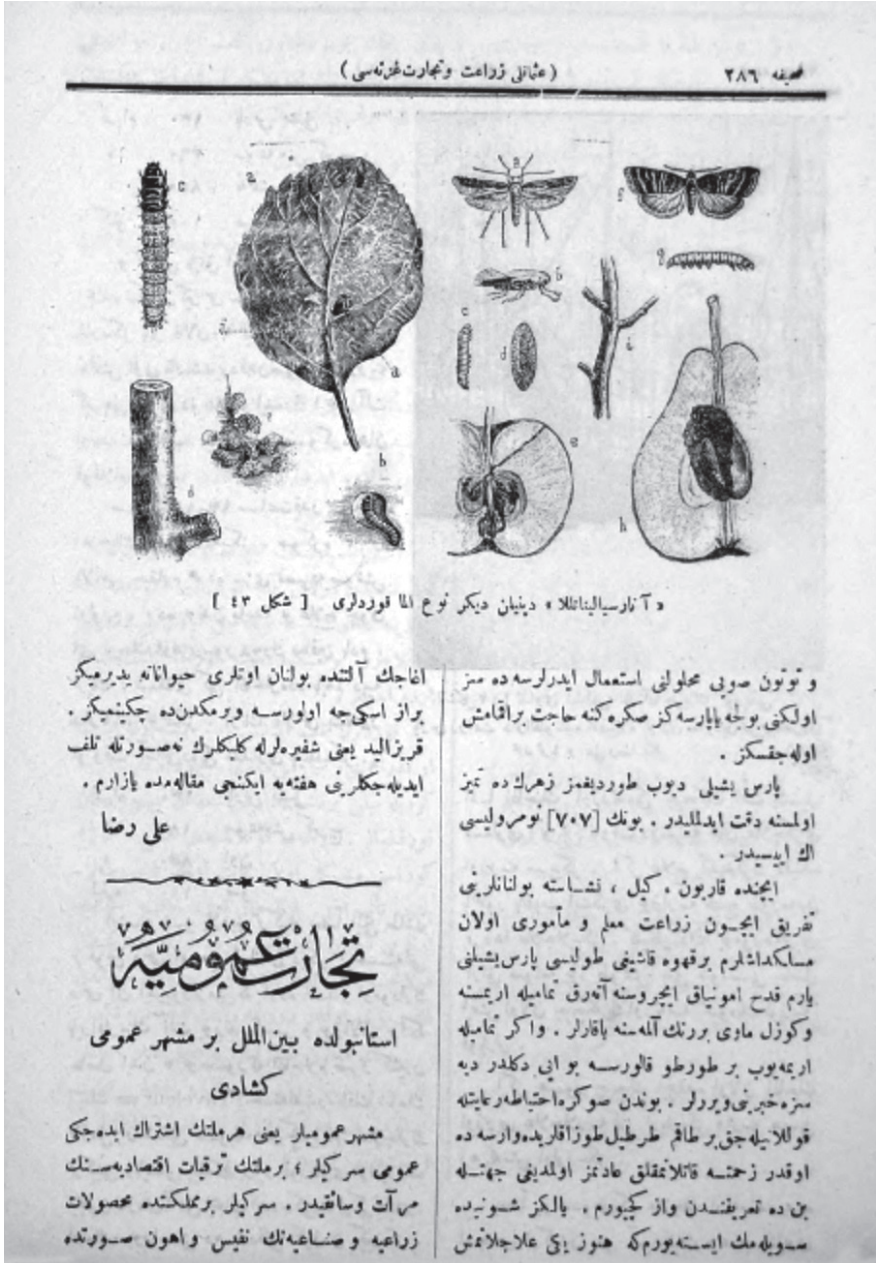 صحیفه ٢٨٦
(عثمانلی زراعت وتجارت غزته‌سی)
a
a
b
c
d
e
f
g
h
i
a
b
c
d
« آنارسیالینه‌اتللا » دینیلن دیكر نوع الما قوردلری [ شكل ٤٣ ]
و توتون صویی محلولنی استعمال ایدرلرسه ده سز
اولكنی بویجه یاپارسه‌كز صكره‌كنه حاجت براقمامش
اوله‌جقسكز .
پارس یشیلی دیوب طوردیغمز زهرك ده تمیز
اولمسنه دقت ایدلملیدر . بونك [٧٠٧] نومرولیسی
اك اییسیدر .
ایچنده قاربون ، كیل ، نشاسته بولنانلرینی
تفریق ایچون زراعت معلم و مأموری اولان
مسلكداشلرم برقهوه قاشیغی طولیسی پارس یشیلنی
یارم قدح امونیاق ایچروسنه آته‌رق تمامیله اریمسنه
وكوزل ماوی بررنك آلمه‌سنه باقارلر . واكر تمامیله
اریمه‌یوب بر طورطو قالورسه بو ایی دكلدر دیه
سزه خبرینی ویررلر . بوندن صوكره احتیاطه رعایتله
قوللانیله‌جق بر طاقم طرطیل طوزاقلری ده وارسه ده
اوقدر زحمته قاتلانمقلق عادتمز اولمدیغی جهتله
بن ده تعریفندن واز كچیورم . یالكز شونی ده
سویله‌مك ایسته‌یورم كه هنوز یكی علاجلانمش
اغاجك آلتنده بولنان اوتلری حیواناته یدیرمیكز
براز اسكی‌جه اولورسه ویرمكدن ده چكینمیكز .
قریزالید یعنی شفیره‌لرله كلبكلرك نه صورتله تلف
ایدیله‌جكلرینی هفته‌یه ایكنجی مقاله‌مده یازارم .
علی رضا
تجارت عمومیه
استانبولده بین‌الملل بر مشهر عمومی
كشادی
مشهر عمومیلر یعنی هر ملتك اشتراك ایده‌جكی
عمومی سركیلر ؛ بر ملتك ترقیات اقتصادیه‌سنك
مرآت وسائقیدر . سركیلر بر مملكتده محصولات
زراعیه و صناعیه‌نك نفیس و اهون صورتده